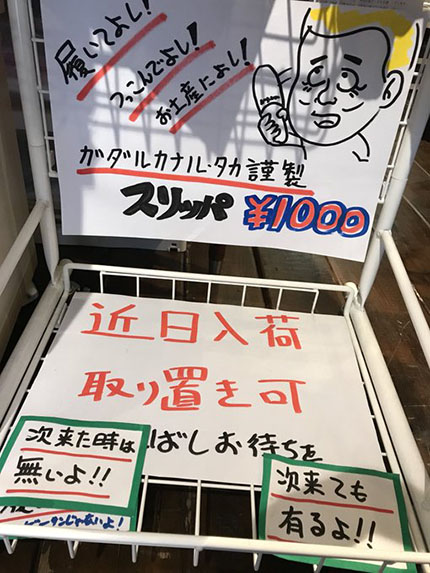 履いてよし!
つっこんでよし!
お土産によし!
ガダルカナル・タカ謹製
スリッパ ¥1000
近日入荷
取り置き可
ばしお待ちを
次来た時は
無いよ!!
次来ても
有るよ!!